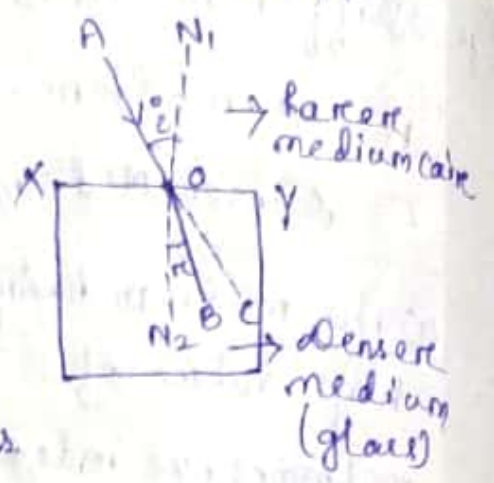 A N₁
i
→ Rarer
medium (air
X O Y
r
B C
N₂
→ Denser
medium
(glass)
s.